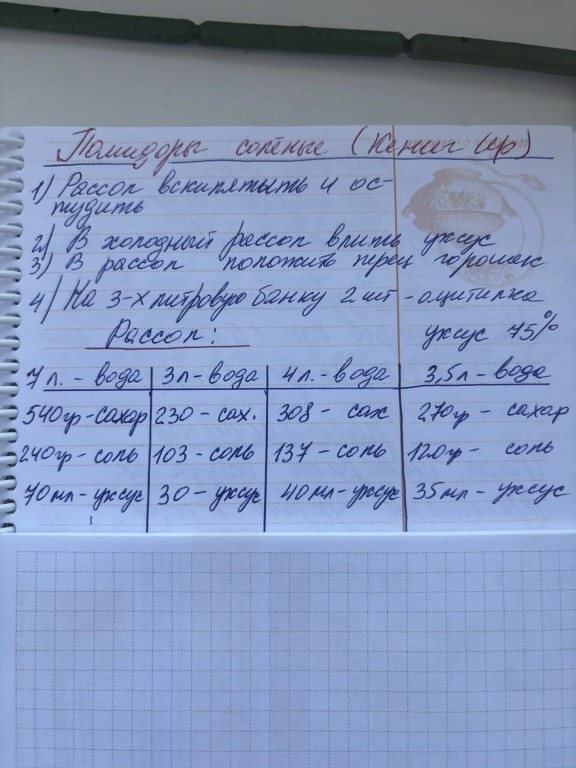 Помидоры солёные (Кениг Ир)
1) Рассол вскипятыть и ос-
тудить
2) В холодный рассол влить уксус
3) В рассол положить перец горошек
4) На 3-х литровую банку 2 шт -
Рассол: уксус 75%
7 л. - вода 3л - вода 4 л. - вода 3,5л - вода
540гр - сахар 230 - сах. 308 - сах 270гр - сахар
240гр - соль 103 - соль 137 - соль 120гр - соль
70 мл - уксус 30 - уксус 40 мл - уксус 35 мл - уксус